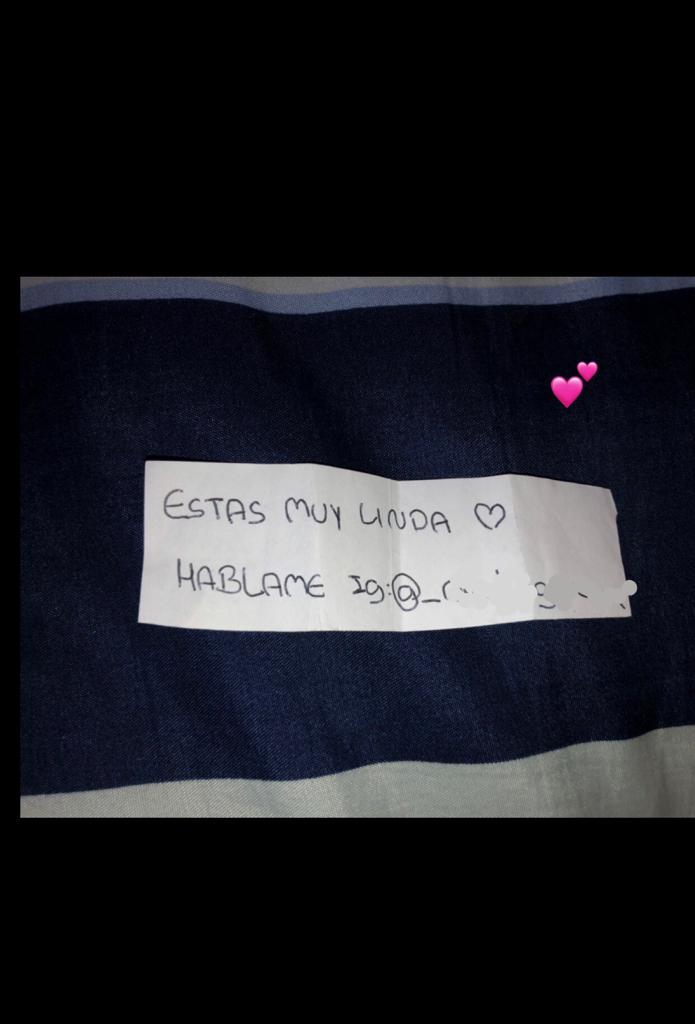 ESTAS MUY LINDA ♡
HABLAME Ig: